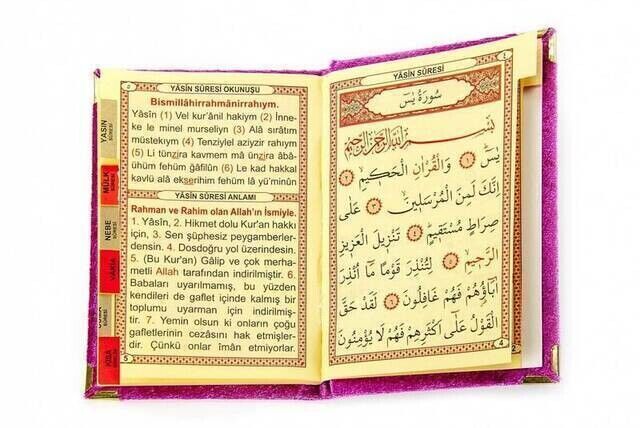 YÂSİN SÛRESİ OKUNUŞU
Bismillâhirrahmânirrahym.
Yâsîn (1) Vel kur'ânil hakiym (2) İnne-
ke le minel murseliyn (3) Alâ sırâtım
müstekıym (4) Tenziylel aziyzir rahıym
(5) Li tünzira kavmem mâ ünzira âbâ-
ühüm fehüm gâfilûn (6) Le kad hakkal
kavlü alâ ekserihim fehüm lâ yü'minûn
YÂSİN SÛRESİ ANLAMI
Rahman ve Rahim olan Allah'ın İsmiyle.
1. Yâsîn, 2. Hikmet dolu Kur'an hakkı
için, 3. Sen şüphesiz peygamberler-
densin. 4. Dosdoğru yol üzerindesin.
5. (Bu Kur'an) Gâlip ve çok merha-
metli Allah tarafından indirilmiştir. 6.
Babaları uyarılmamış, bu yüzden
kendileri de gaflet içinde kalmış bir
toplumu uyarman için indirilmiş-
tir. 7. Yemin olsun ki onların çoğu
gafletlerinin cezasını hak etmişler-
dir. Çünkü onlar îman etmiyorlar.
5
YASIN
SÛRESİ
MÜLK
SÛRESİ
NEBE
SÛRESİ
KISA
YÂSİN SÛRESİ
سُورَةُ يٰسٓ
بِسْمِ اللّٰهِ الرَّحْمٰنِ الرَّحِيمِ
يٰسٓ ۝١ وَالْقُرْاٰنِ الْحَكِيمِ ۝٢
اِنَّكَ لَمِنَ الْمُرْسَلِينَ ۝٣ عَلٰى
صِرَاطٍ مُسْتَقِيمٍ ۝٤ تَنْزِيلَ الْعَزِيزِ
الرَّحِيمِ ۝٥ لِتُنْذِرَ قَوْمًا مَٓا اُنْذِرَ
اٰبَٓاؤُهُمْ فَهُمْ غَافِلُونَ ۝٦ لَقَدْ حَقَّ
الْقَوْلُ عَلٰٓى اَكْثَرِهِمْ فَهُمْ لَا يُؤْمِنُونَ
4